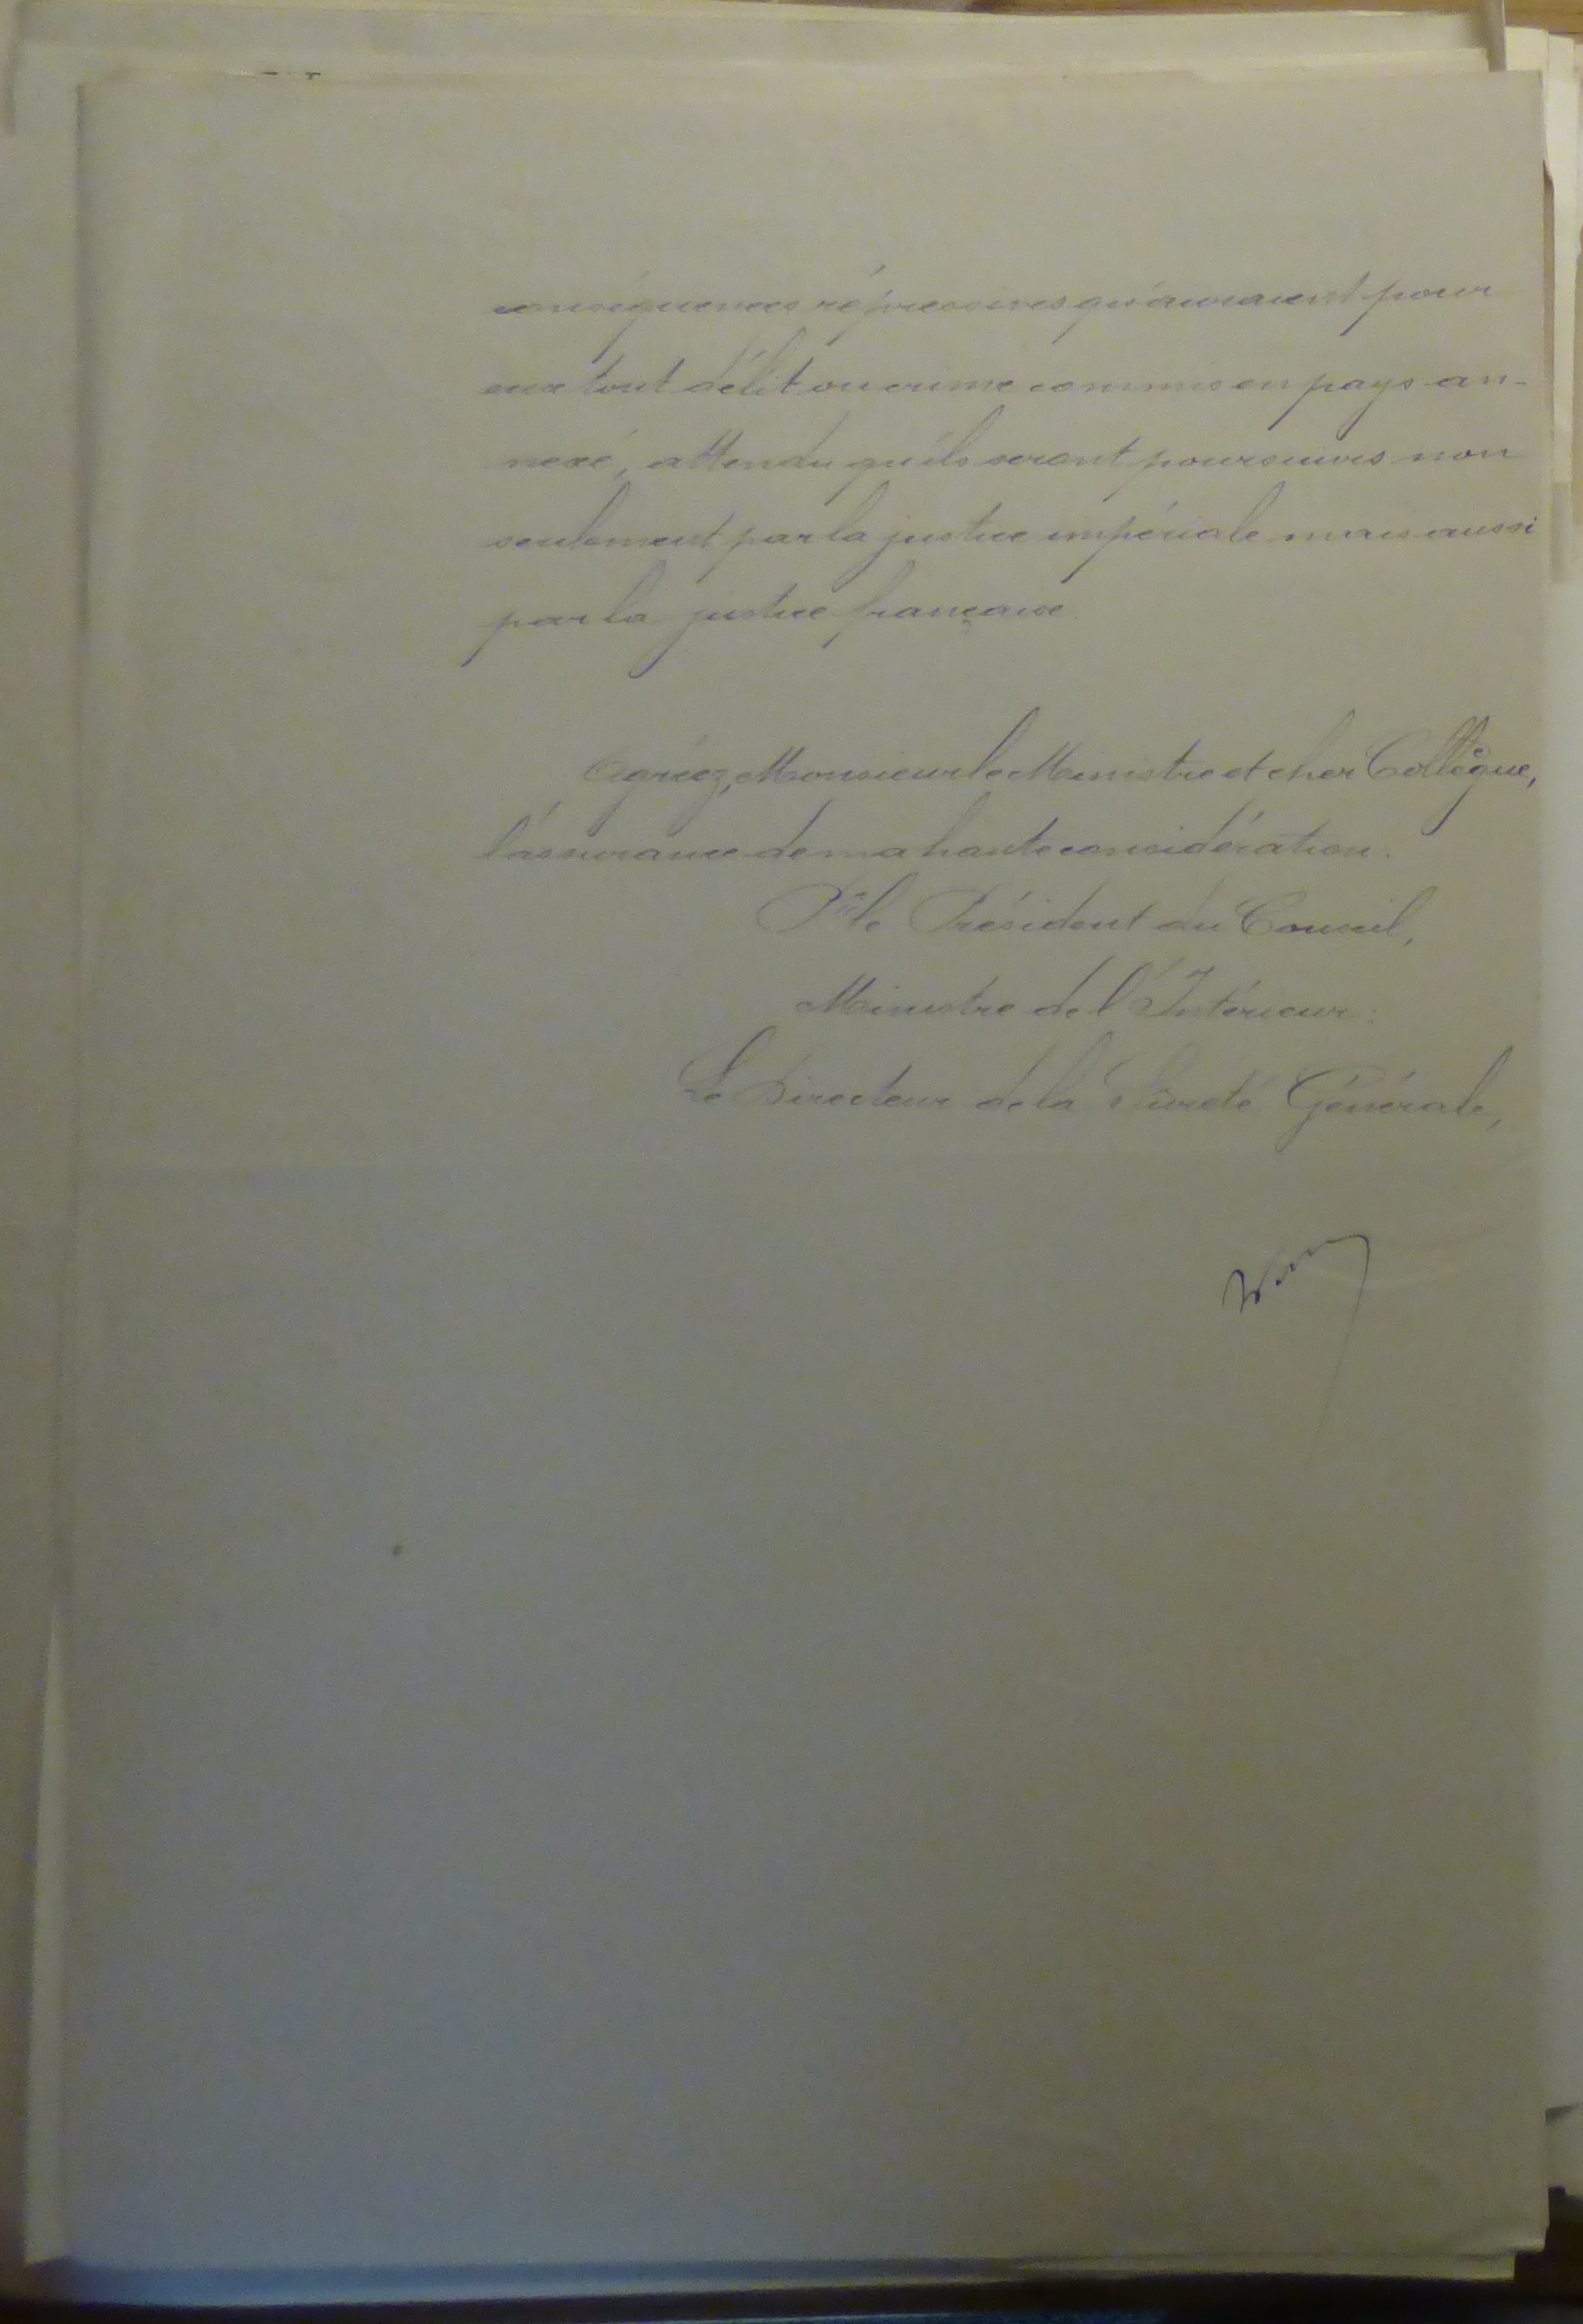 conséquences répressives qu'auraient pour
eux tout délit ou crime commis en pays an-
nexé, attendu qu'ils seront poursuivis non
seulement par la justice impériale mais aussi
par la justice française.
Agréez, Monsieur le Ministre et cher Collègue,
l'assurance de ma haute considération.
Pr le Président du Conseil,
Ministre de l'Intérieur:
Le Directeur de la Sûreté Générale,